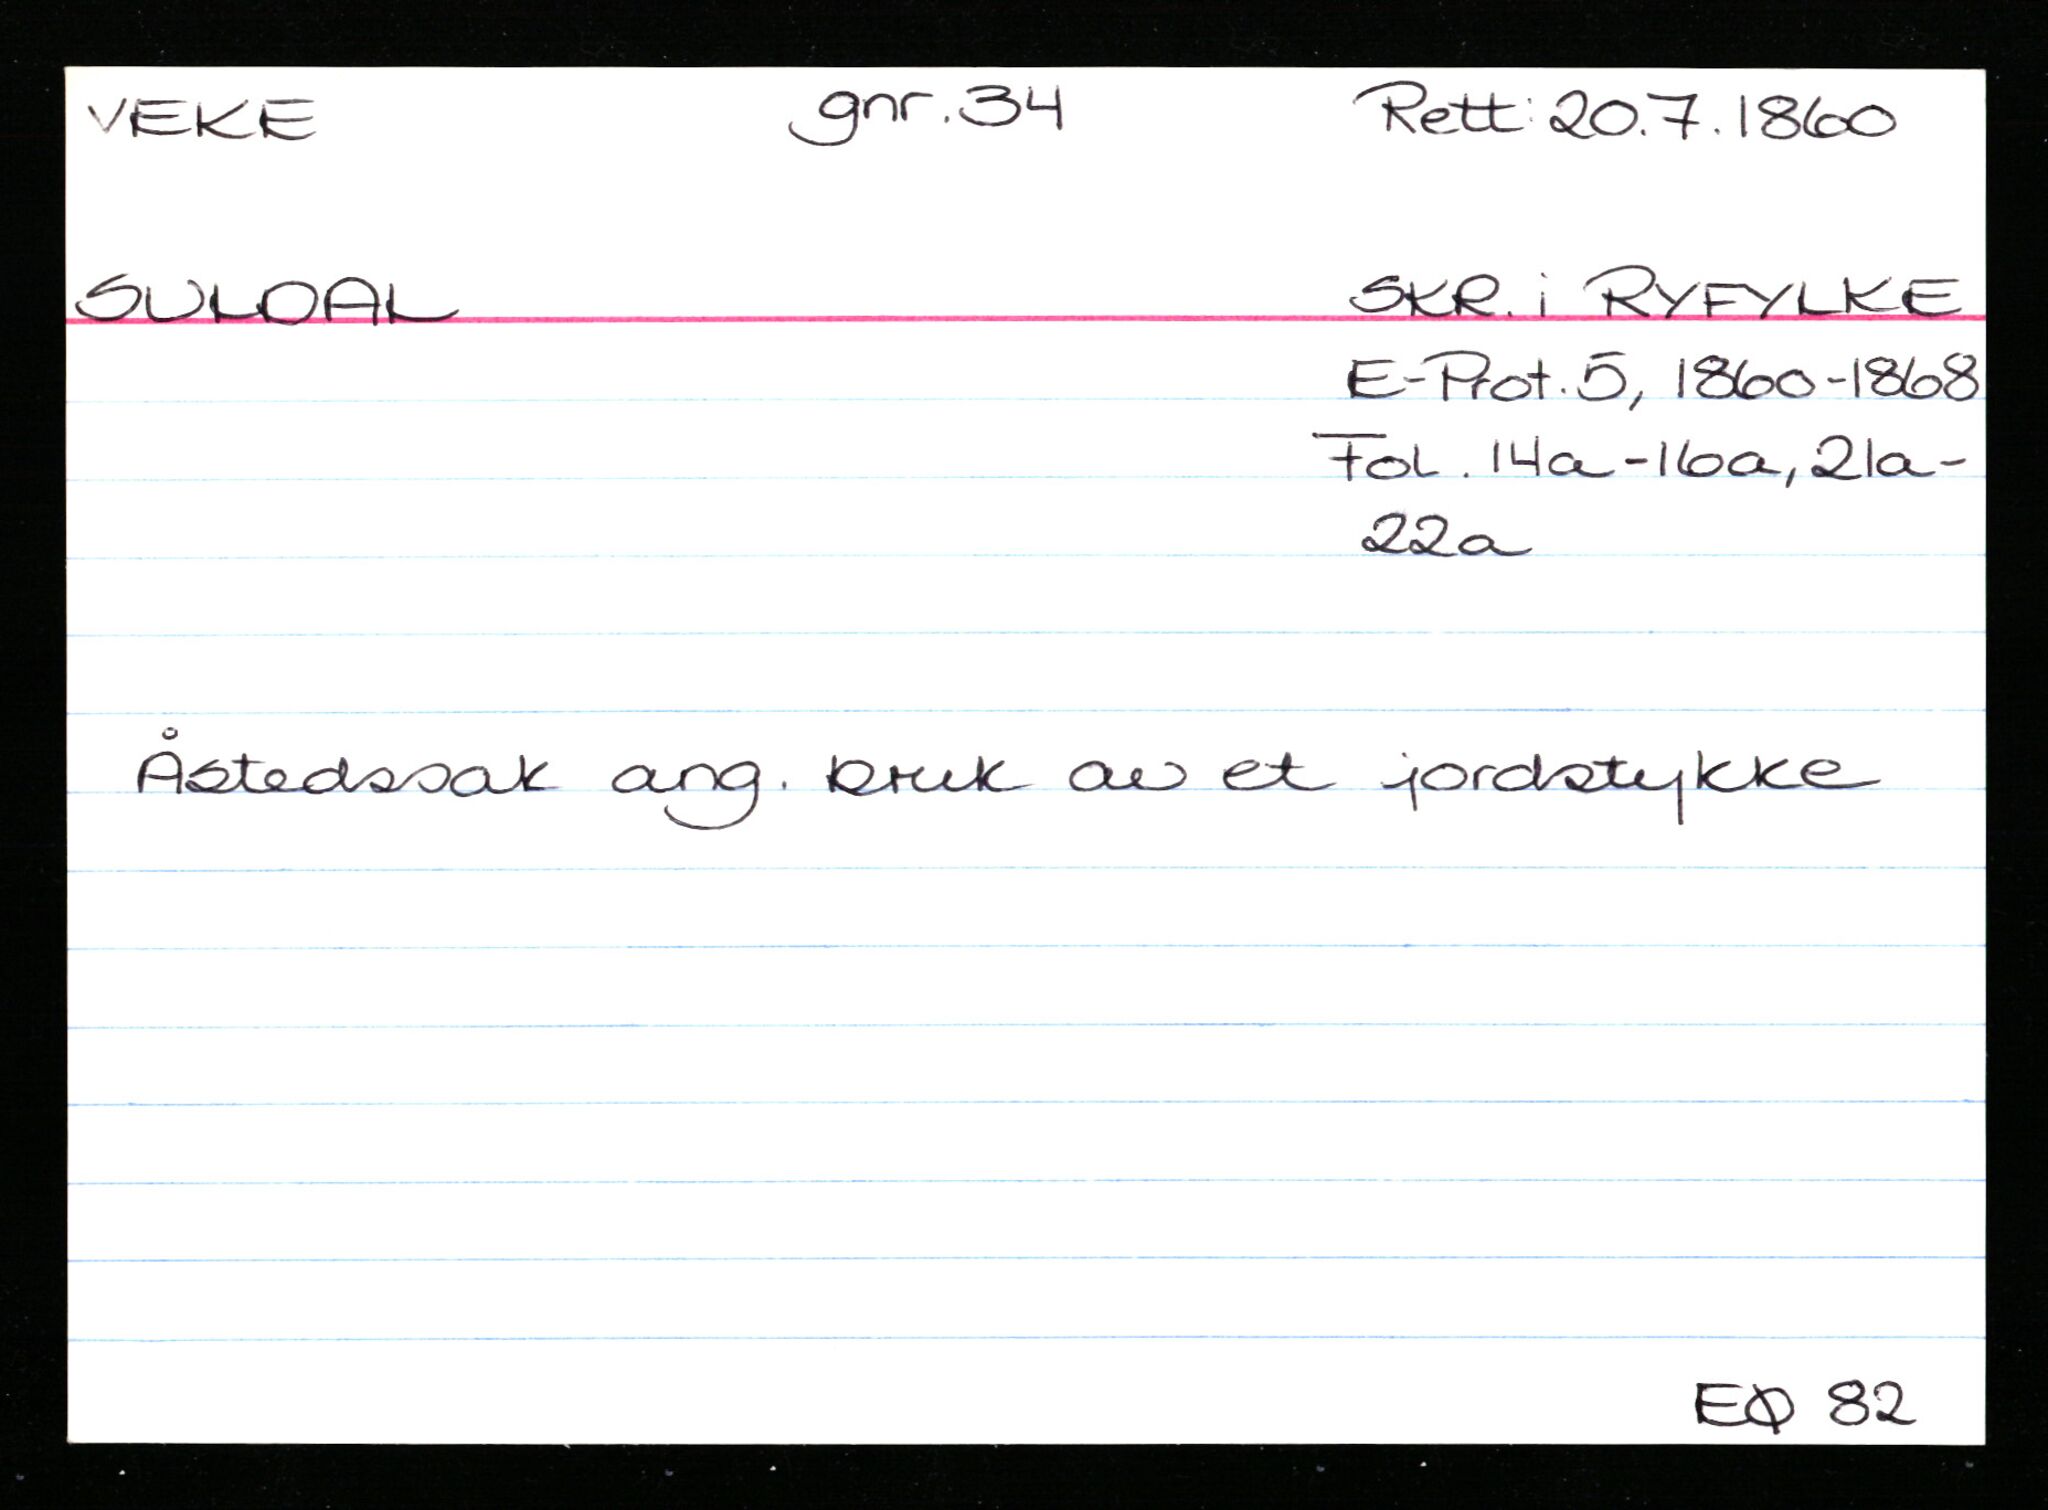 VEKE gnr. 34 Rett: 20.7.1860
SULDAL SKR. i RYFYLKE
E-Prot. 5, 1860-1868
Fol. 14a-16a, 21a-
22a
Åstedssak ang. bruk av et jordstykke
EØ 82